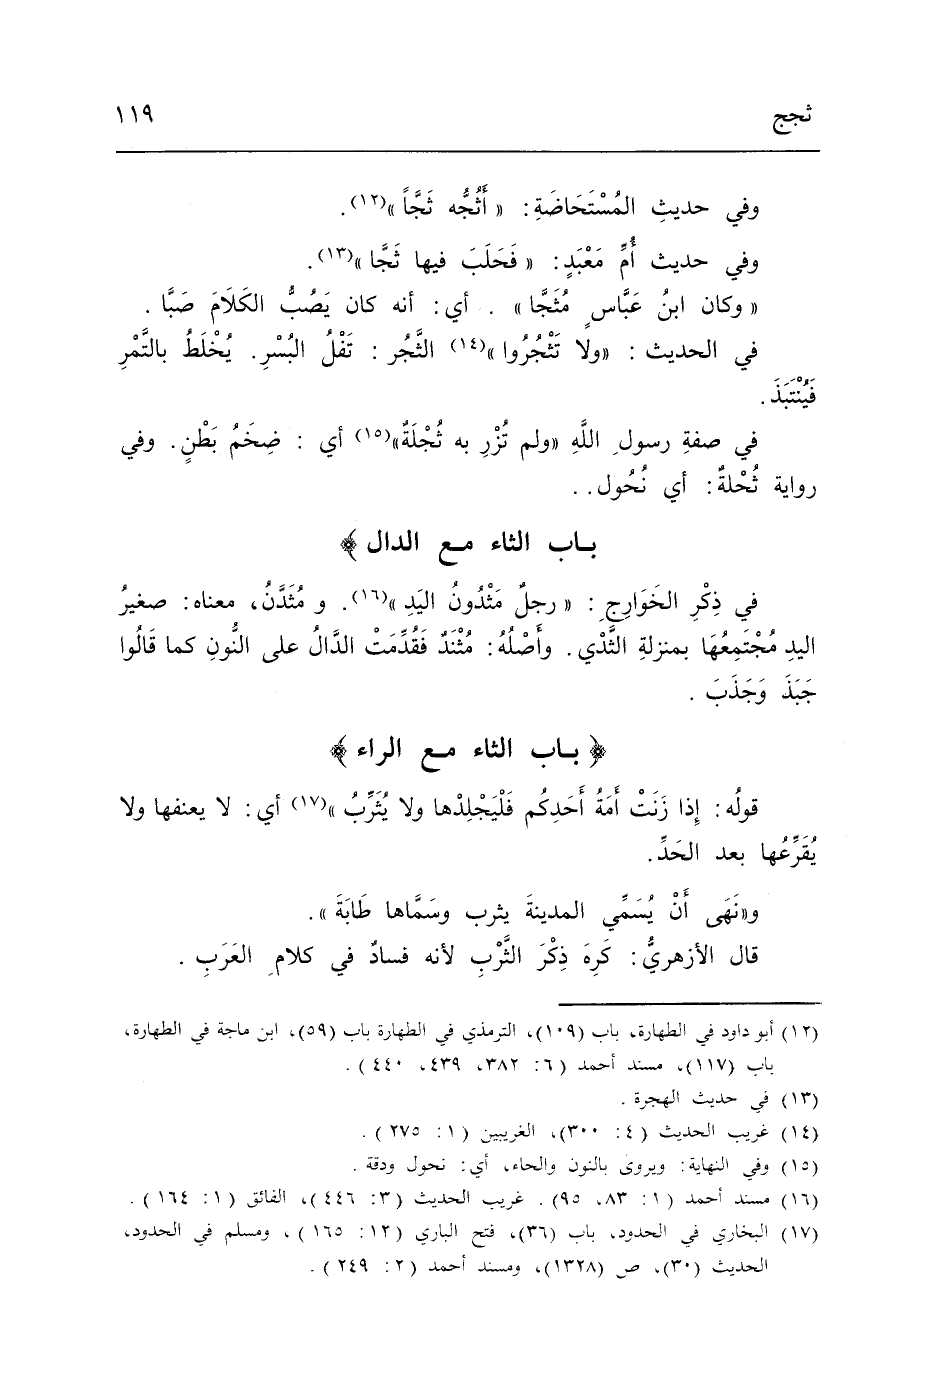 ثجج ١١٩
وفي حديثِ المُسْتَحَاضَةِ: « أَثُجُّه ثَجَّاً »(١٢).
وفي حديث أُمِّ مَعْبَدٍ: « فَحَلَبَ فيها ثَجَّا »(١٣).
« وكان ابنُ عَبَّاسٍ مُثَجَّا » . أي: أنه كان يَصُبُّ الكَلَامَ صَبَّا .
في الحديث : «ولا تَثْجُرُوا »(١٤) الثَّجُر : تَفْلُ البُسْرِ. يُخْلَطُ بالتَّمْرِ
فَيُنْتَبَذَ.
في صفةِ رسولِ اللَّهِ «ولم تُزْرِ به ثُجْلَةٌ»(١٥) أي : ضِخَمُ بَطْنٍ. وفي
رواية ثُحْلةٌ: أي نُحُول. .
بـاب الثاء مـع الدال ﴾
في ذِكْرِ الخَوَارِجِ : « رجلٌ مَثْدُونُ اليَدِ »(١٦). و مُثَدَّنُ، معناه: صغيرُ
اليدِ مُجْتَمِعُهَا بمنزلةِ الثَّدْي. وأَصْلُهُ: مُثْنَدٌ فَقُدِّمَتْ الدَّالُ على النُّونِ كما قَالُوا
جَبَذَ وَجَذَبَ .
﴿ بـاب الثاء مـع الراء ﴾
قولُه: إِذا زَنَتْ أَمَةُ أَحَدِكُم فَلْيَجْلِدْها ولا يُثَرِّبُ »(١٧) أي: لا يعنفها ولا
يُقَرِّعُها بعد الحَدِّ.
و«نَهَى أَنْ يُسَمِّي المدينةَ يثرب وسَمَّاها طَابَةَ ».
قال الأزهريُّ: كَرِهَ ذِكْرَ الثَّرْبِ لأنه فسادٌ في كلامِ العَرَبِ .
(١٢) أبو داود في الطهارة، باب (١٠٩)، الترمذي في الطهارة باب (٥٩)، ابن ماجة في الطهارة،
باب (١١٧)، مسند أحمد (٦: ٣٨٢، ٤٣٩، ٤٤٠ ) .
(١٣) في حديث الهجرة .
(١٤) غريب الحديث (٤: ٣٠٠)، الغريبين (١: ٢٧٥ ) .
(١٥) وفي النهاية: ويروى بالنون والحاء، أي: نحول ودقة .
(١٦) مسند أحمد (١: ٨٣، ٩٥) . غريب الحديث (٣: ٤٤٦)، الفائق (١: ١٦٤ ) .
(١٧) البخاري في الحدود، باب (٣٦)، فتح الباري (١٢: ١٦٥ ) ، ومسلم في الحدود،
الحديث (٣٠)، ص (١٣٢٨)، ومسند أحمد (٢: ٢٤٩ ) .